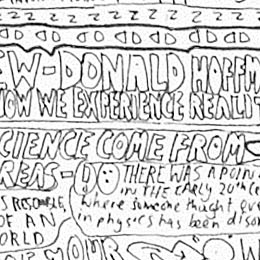 W-DONALD HOFFM
HOW WE EXPERIENCE REALIT
CIENCE COME FROM
REAS-
THERE WAS A POIN
IN THE EARLY 20th CE
where someone thought, que
in physics has been disc
OF AN
ORLD